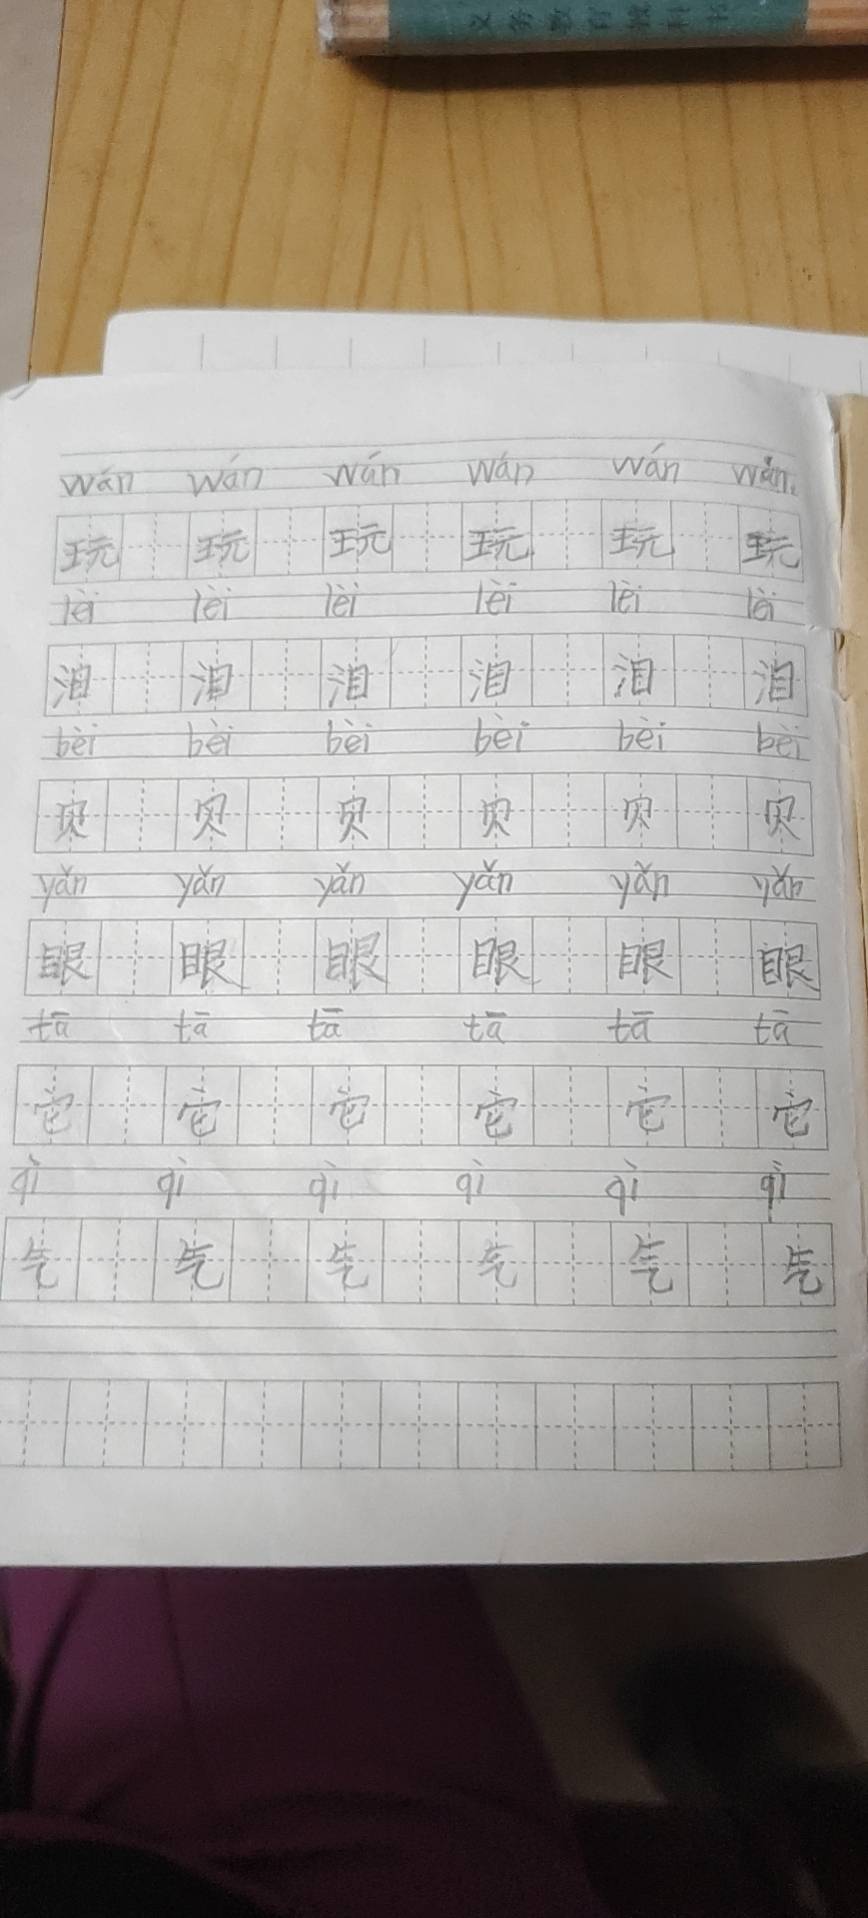 义务教育教科书
wán wán wán wán wán wán
玩 玩 玩 玩 玩 玩
lèi lèi lèi lèi lèi lèi
泪 泪 泪 泪 泪 泪
bèi bèi bèi bèi bèi bèi
贝 贝 贝 贝 贝 贝
yǎn yǎn yǎn yǎn yǎn yǎn
眼 眼 眼 眼 眼 眼
tā tā tā tā tā tā
它 它 它 它 它 它
qì qì qì qì qì qì
气 气 气 气 气 气